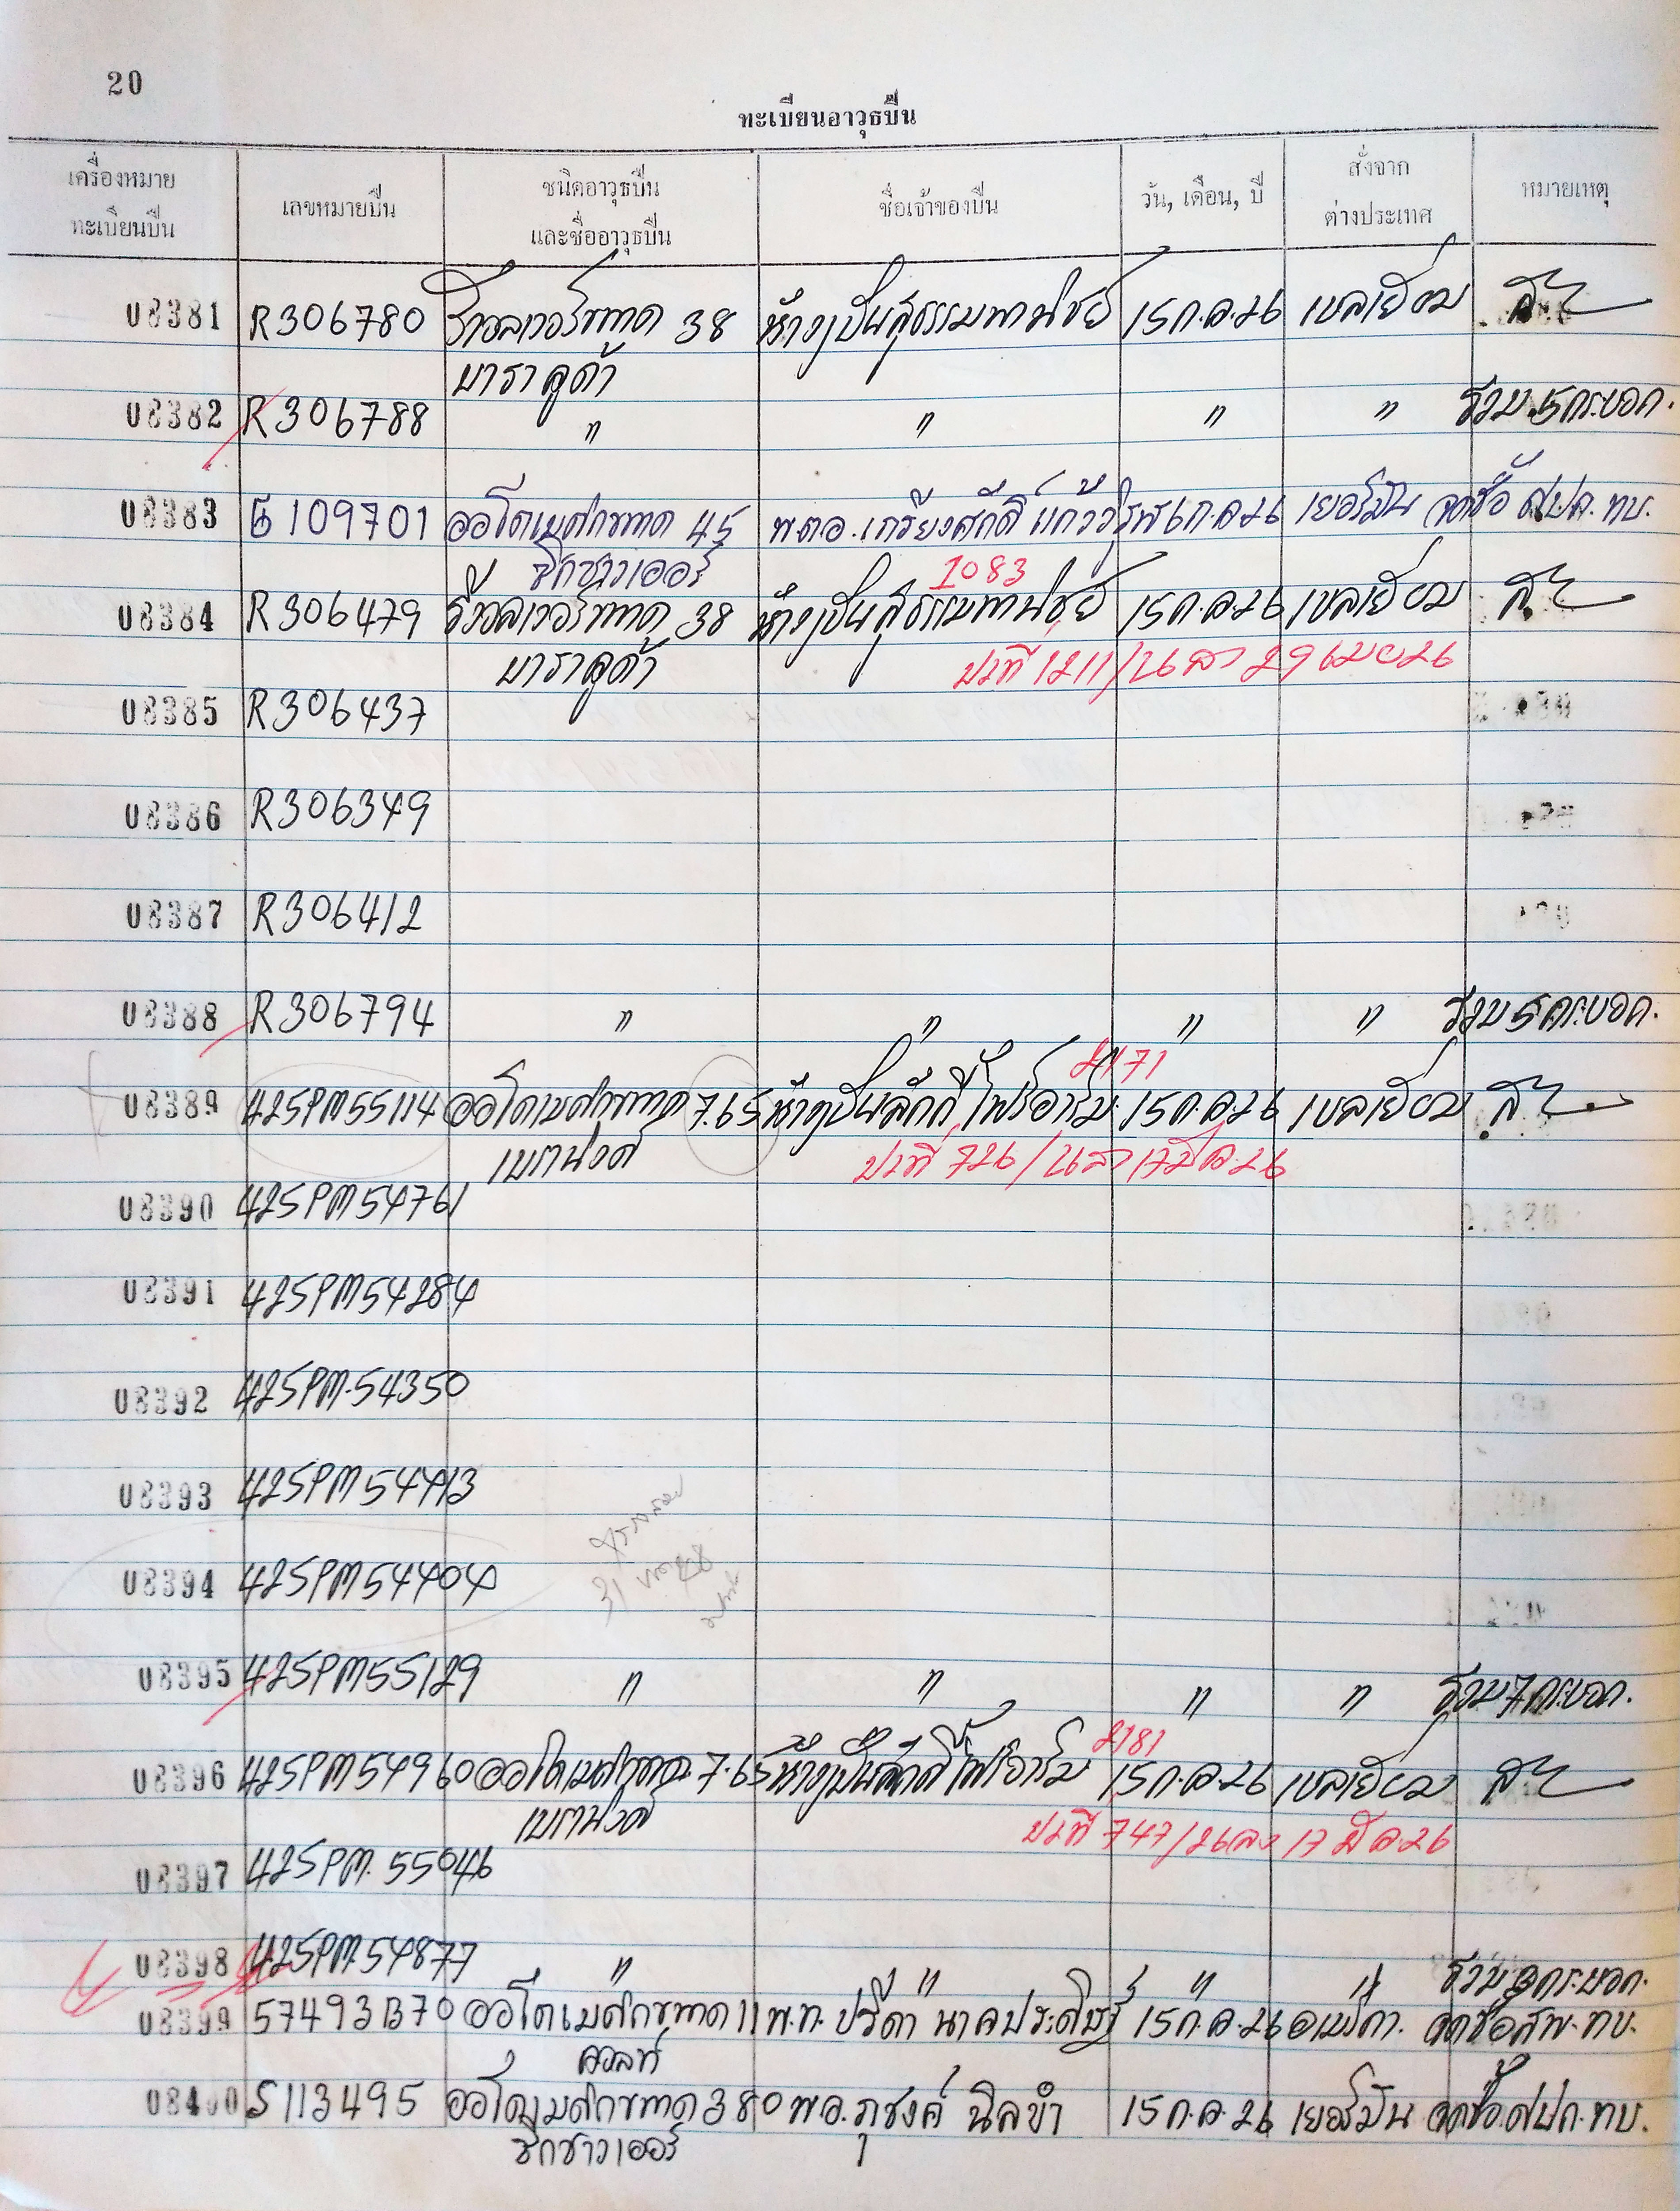 20
ทะเบียนอาวุธปืน
เครื่องหมาย
ทะเบียนปืน
เลขหมายปืน
ชนิดอาวุธปืน
และชื่ออาวุธปืน
ชื่อเจ้าของปืน
วัน, เดือน, ปี
สั่งจาก
ต่างประเทศ
หมายเหตุ
08381 R306780 รีวอลเวอร์ขนาด 38 ห้างปืนสุธรรมพานิชย์ 15 ก.ค.26 เบลเยี่ยม
บาราคูด้า
08382 R306788 " " " " รวม 5 กระบอก.
08383 G109701 ออโตเมติกขนาด 45 พ.ต.อ. เกรียงศักดิ์ แก้ววิ 6 ก.ค.26 เยอรมัน จดชื่อ สปก. ทบ.
ซิกซาวเออร์
1083
08384 R306479 รีวอลเวอร์ขนาด 38 ห้างปืนสุธรรมพานิชย์ 15 ก.ค.26 เบลเยี่ยม
บาราคูด้า ป.ที่ 1211/26 ลว 29 เมย 26
08385 R306437
08386 R306349
08387 R306412
08388 R306794 " " " " รวม 5 กระบอก.
2171
08389 425PM55114 ออโตเมติกขนาด 7.65 ห้างปืนลักกี้ไฟร์อาร์ม 15 ก.ค.26 เบลเยี่ยม
เบราน์วงศ์ ป.ที่ 726/26 ลว 17 มี.ค.26
08390 425PM54761
08391 425PM54284
08392 425PM.54350
08393 425PM54413
08394 425PM54404
08395 425PM55129 " " " " รวม 7 กระบอก.
2181
08396 425PM54960 ออโตเมติกขนาด 7.65 ห้างปืนลักกี้ไฟร์อาร์ม 15 ก.ค.26 เบลเยี่ยม
ป.ที่ 747/26 ลว 17 มี.ค.26
08397 425PM.55046
08398 425PM.54877 " " " " รวม 3 กระบอก.
08399 57493B70 ออโตเมติกขนาด 11 พ.ท. ปรีดา นาคประดิษฐ์ 15 ก.ค.26 อเมริกา. จดชื่อ สพ.ทบ.
คอลท์
08400 S113495 ออโตเมติกขนาด 380 พ.อ. ภุชงค์ นิลขำ 15 ก.ค.26 เยอรมัน จดชื่อ. สปก. ทบ.
ซิกซาวเออร์